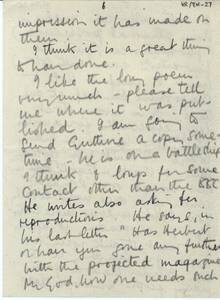 6
impression it has made on
them.
I think it is a great thing
to have done.
I like the long poem
very much – please tell
me where it was pub-
lished. I am going to
send Guthrie a copy some-
time – he is on a battleship
I think & longs for some
contact other than the
He writes also asking for
reproductions He says, in
his last letter "Has Herbert
or have you gone any further
with the projected magazine
My God, how one needs such